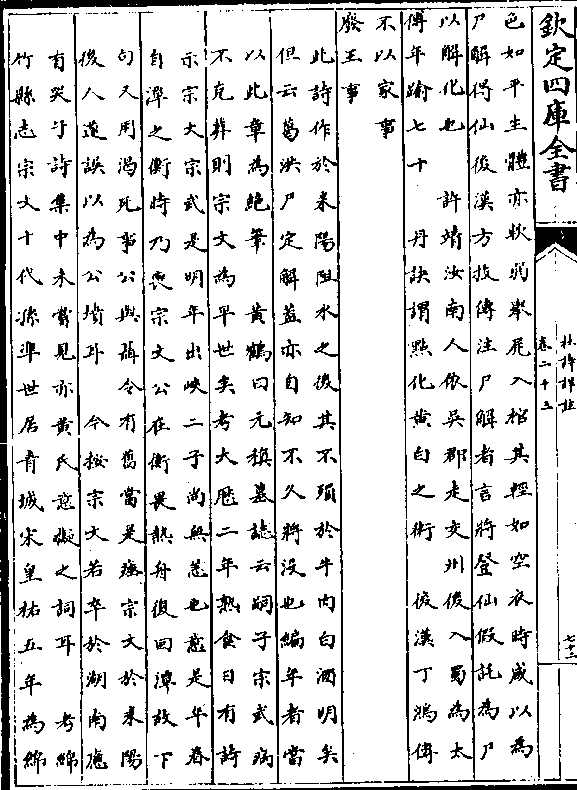 欽定四庫全書
杜詩詳註
卷二十三
七十三
色如平生體亦軟弱舉屍入棺其輕如空衣時咸以為
尸解得仙後漢方技傳注尸解者言將登仙假託為尸
以解化也 許靖汝南人依吳郡走交州後入蜀為太
傅年踰七十 丹訣謂點化黄白之術 後漢丁鴻傳
不以家事
廢王事
此詩作於耒陽阻水之後其不殞於牛肉白酒明矣
但云葛洪尸定解蓋亦自知不久將没也編年者當
以此章為絶筆 黄鶴曰元稹墓誌云嗣子宗武病
不克葬則宗文為早世矣考大厯二年熟食日有詩
示宗文宗武是明年出峽二子尚無恙也意是年春
自潭之衡時乃喪宗文公在衡畏熱舟復回潭故下
句又用渴死事公與聶令有舊當是瘞宗文於耒陽
後人遂誤以為公墳耳 今按宗文若卒於湖南應
有哭子詩集中未嘗見亦黄氏意擬之詞耳 考綿
竹縣志宗文十代孫準世居青城宋皇祐五年為綿